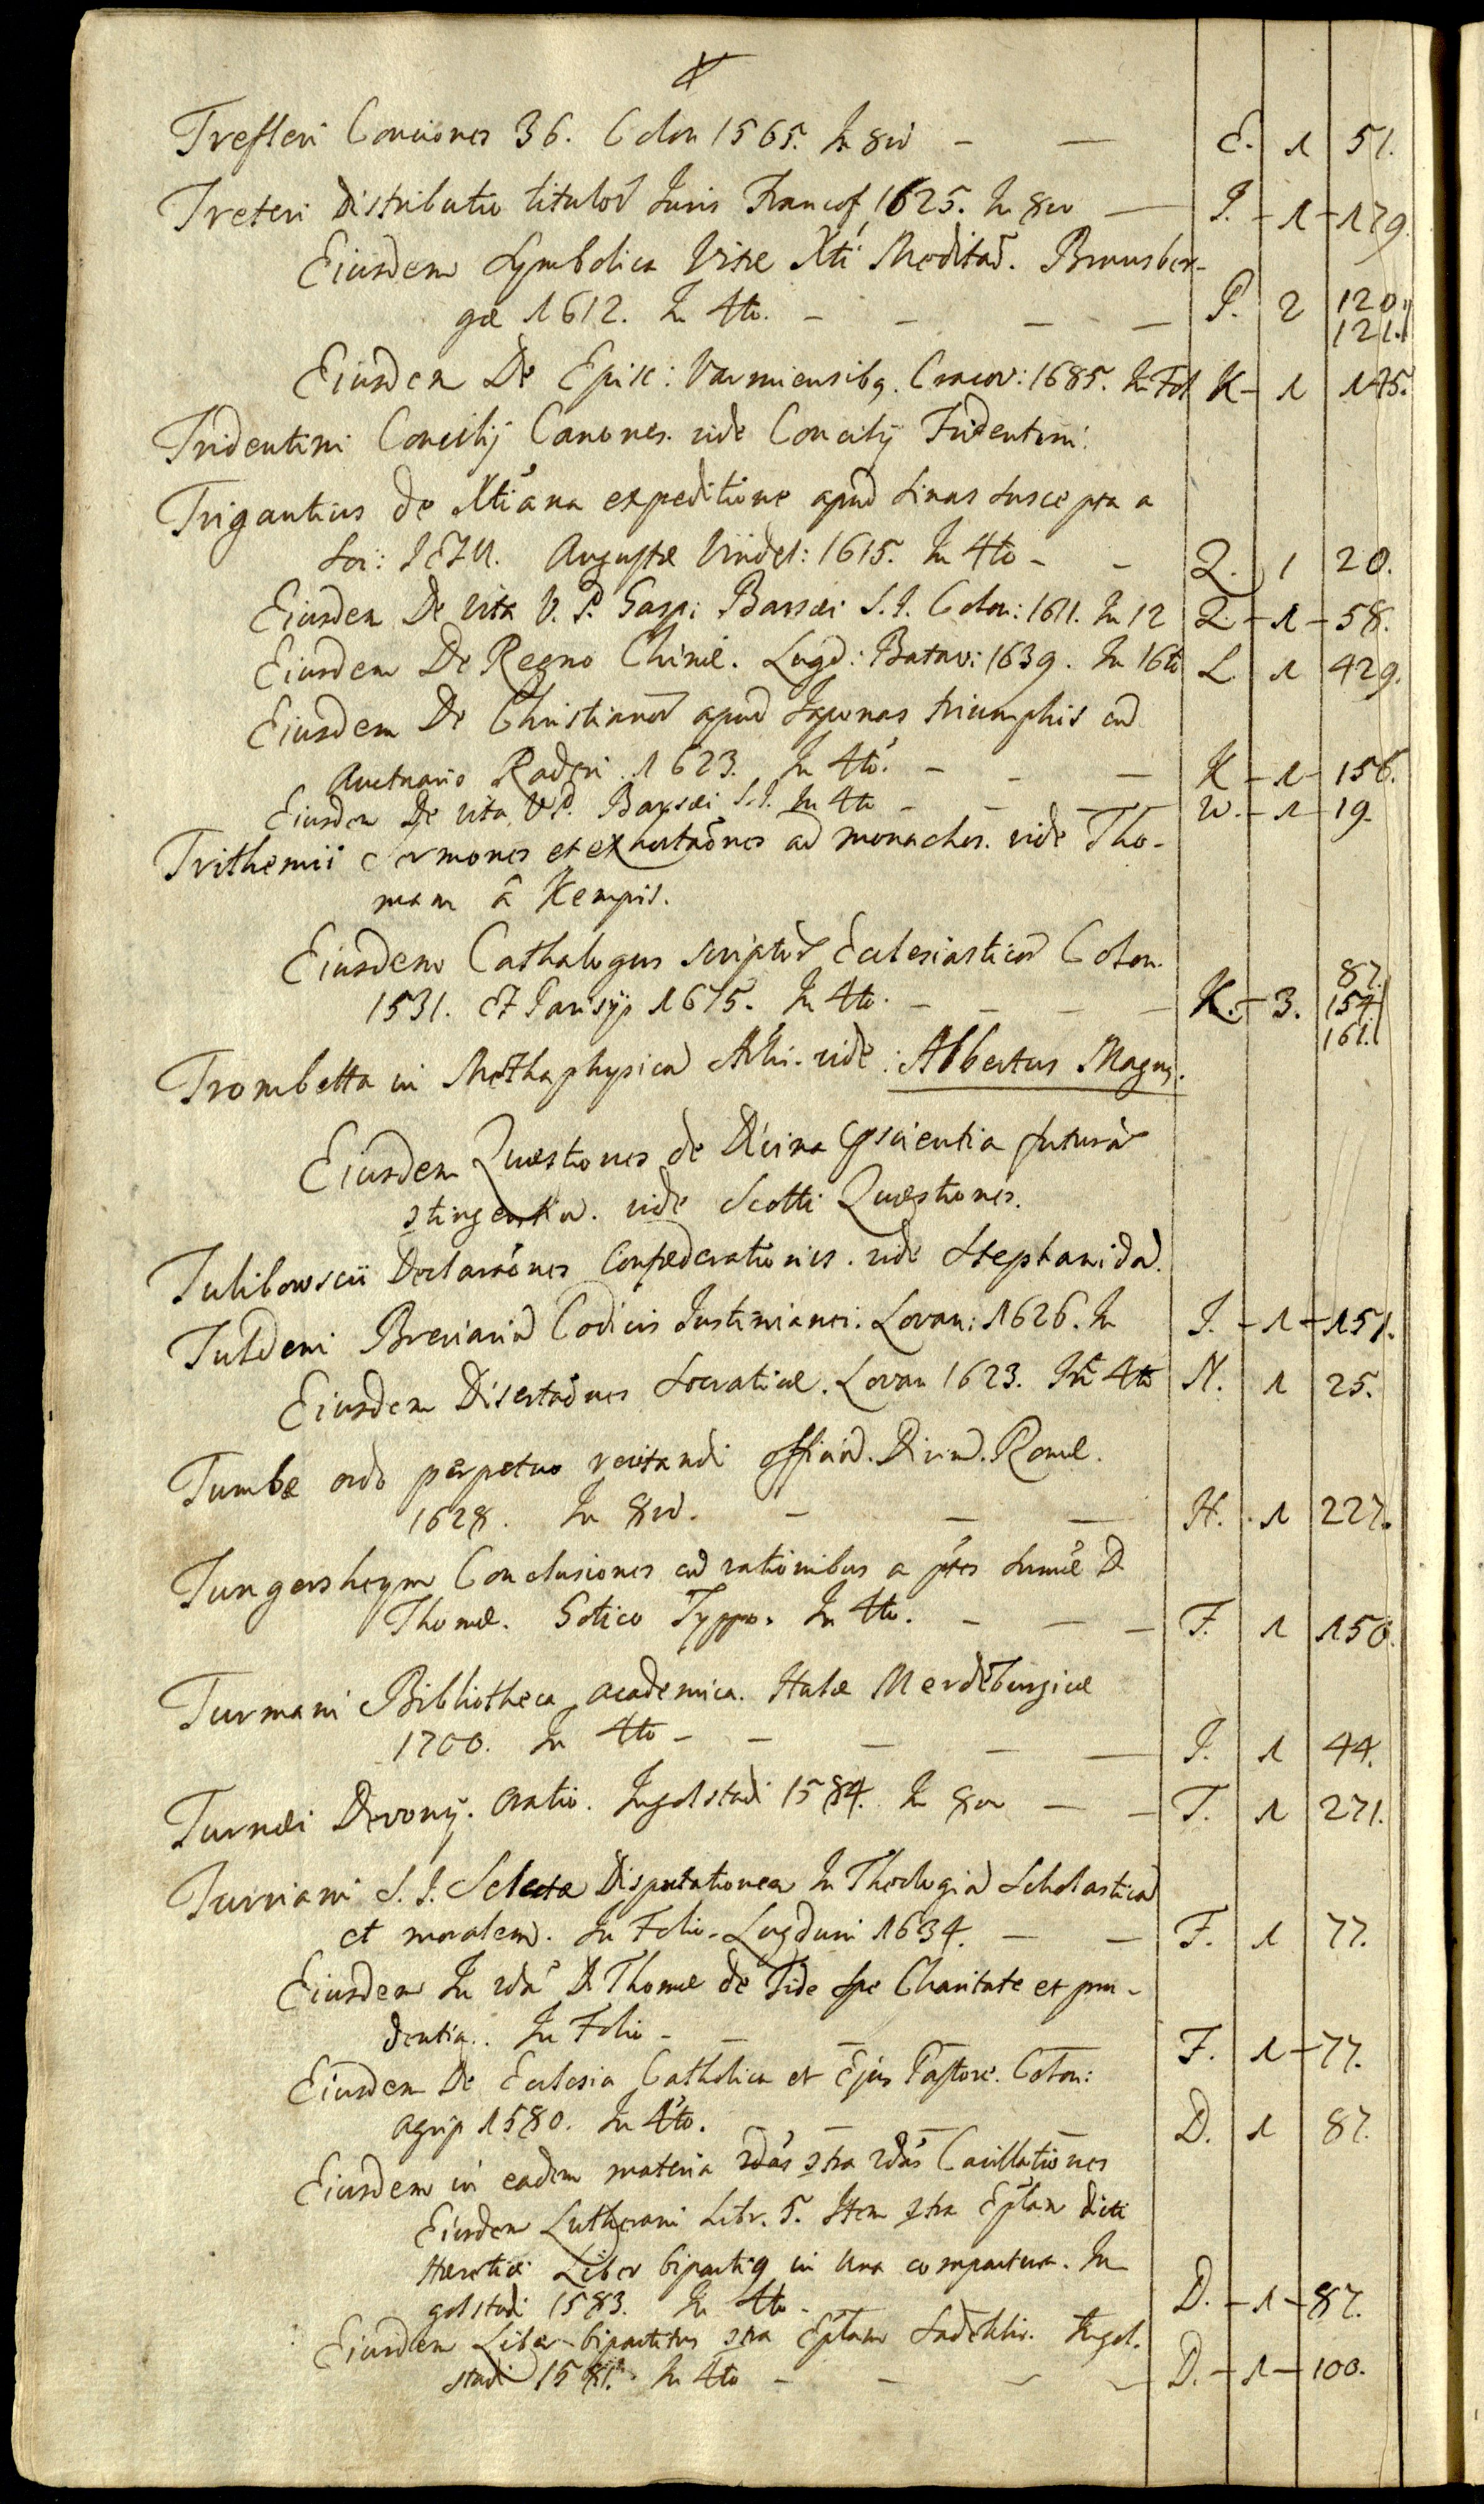 Trefleri Conciones 36. Colon 1565. In 8vo — — E. 1 51.
Treteri Distributio titulor Iuris Francof 1625. In 8vo — I. - 1 - 179.
Eiusdem Symbolica Vitæ Xti Meditaō. Brunsber-
gæ 1612. In 4to. — — — — P. 2 120. 121.
Eiusdem De Episc: Varmiensibq. Cracov: 1685. In Fol K - 1 145.
Tridentini Concilij Canones. vide Concilij Tridentini.
Trigantius de Xtiana expeditione apud Sinas suscepta a
Soc: IESU. Augustæ Vindel: 1615. In 4to - - Q. 1 20.
Eiusdem De Vita V. P. Gasp: Barsæi S. I. Colon: 1611. In 12 Q. - 1 - 58.
Eiusdem De Regno Chinæ. Lugd: Batav: 1639. In 16to L 1 429.
Eiusdem De Christianor apud Iaponas triumphis cū
Auctuario Raderi 1623. In 4to. — — — K - 1 - 156.
Eiusdem De vita V P. Barsæi S. I. In 4to - — — W. - 1 - 19.
Trithemii Sermones et exhortaōnes ad monachos. vide Tho-
mam â Kempis.
Eiusdem Cathalogus scriptor Ecclesiasticor Colon.
1531. Et Parisijs 1675. In 4to. — — — — K. - 3. 87. 154. 161.
Trombetta in Methaphysicā Arhi. vide: Albertus Magnq.
Eiusdem Quæstiones de Divina præscientia futuror
9tingentiu. vide Scotti Quæstiones.
Tulibowscii Declaraōnes Confæderationis. vide Stephanidā.
Tuldeni Breviariū Codicis Iustinianei. Lovan: 1626. In I. - 1 - 151.
Eiusdem Disertaōnes Socraticæ. Lovan 1623. In 4to N. 1 25.
Tumbæ ordo perpetuo recitandi officiū. Divin. Romæ.
1628. In 8vo. — — — H. 1 227.
Tungersheym Conclusiones cū rationibus a ptes Sumæ D.
Thomæ. Gotico Typpo. In 4to. — — — F. 1 150.
Turmani Bibliotheca academica. Halæ Merdeburgicæ
1700. In 4to — — — — — I. 1 44.
Turnæi Devonij. oratio. Ingolstadi 1584. In 8vo — — T. 1 271.
Turriani S. I. Selectæ Disputationes In Theologiā Scholasticā
et moralem. In Folio. Lugduni 1634. — — F. 1 77.
Eiusdem In 2dā D Thomæ de Fide Spe Charitate et pru-
dentia. In Folio — — — F. 1 - 77.
Eiusdem De Ecclesia Catholica et Ejus Pastore. Colon:
agrip 1580. In 4to. — — — D. 1 87.
Eiusdem in eadem materia 2dās 9tra 2dās Cavillationes
Eiusdem Lutherani Libr. 5. Item 9tra Eplam dicti
Hæretici Liber bipartitq in una compactura. In
golstadi 1583. In 4to - D. - 1 - 87.
Eiusdem Liber bipartitus 9tra Eplam Ingol.
stadi 1581. In 4to — — — — D. - 1 - 100.